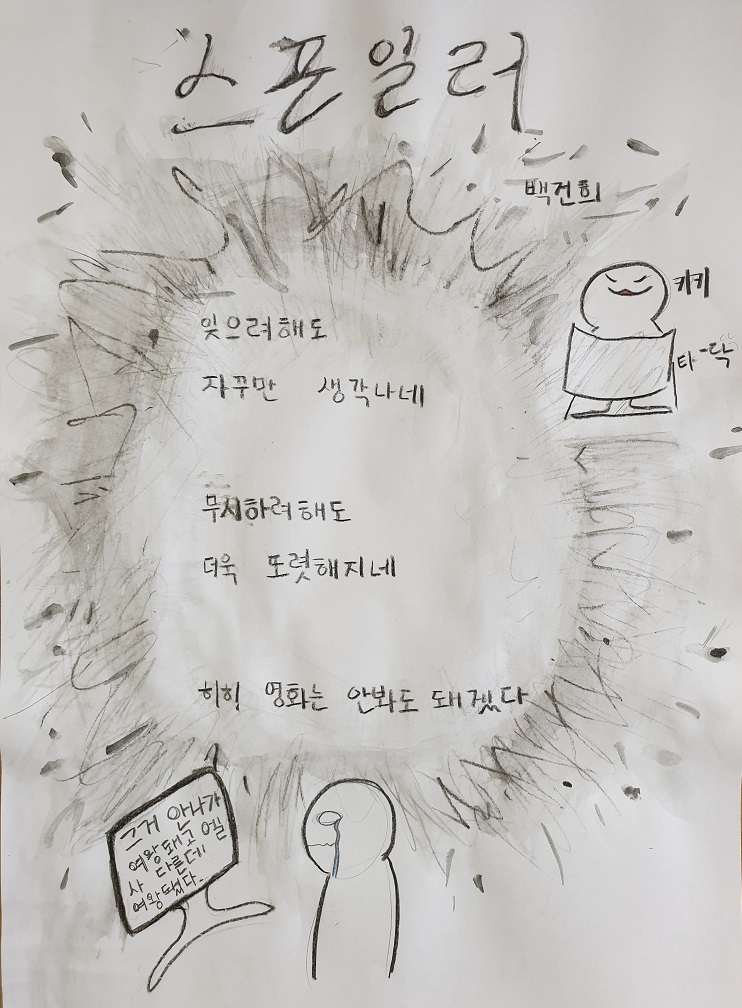 스포일러
백건희
키키
타-닥
잊으려해도
자꾸만 생각나네
무시하려해도
더욱 또렷해지네
히히 영화는 안봐도 돼겠다
그거 안나가
여왕돼구 엘
사 다른데
여왕됬다..